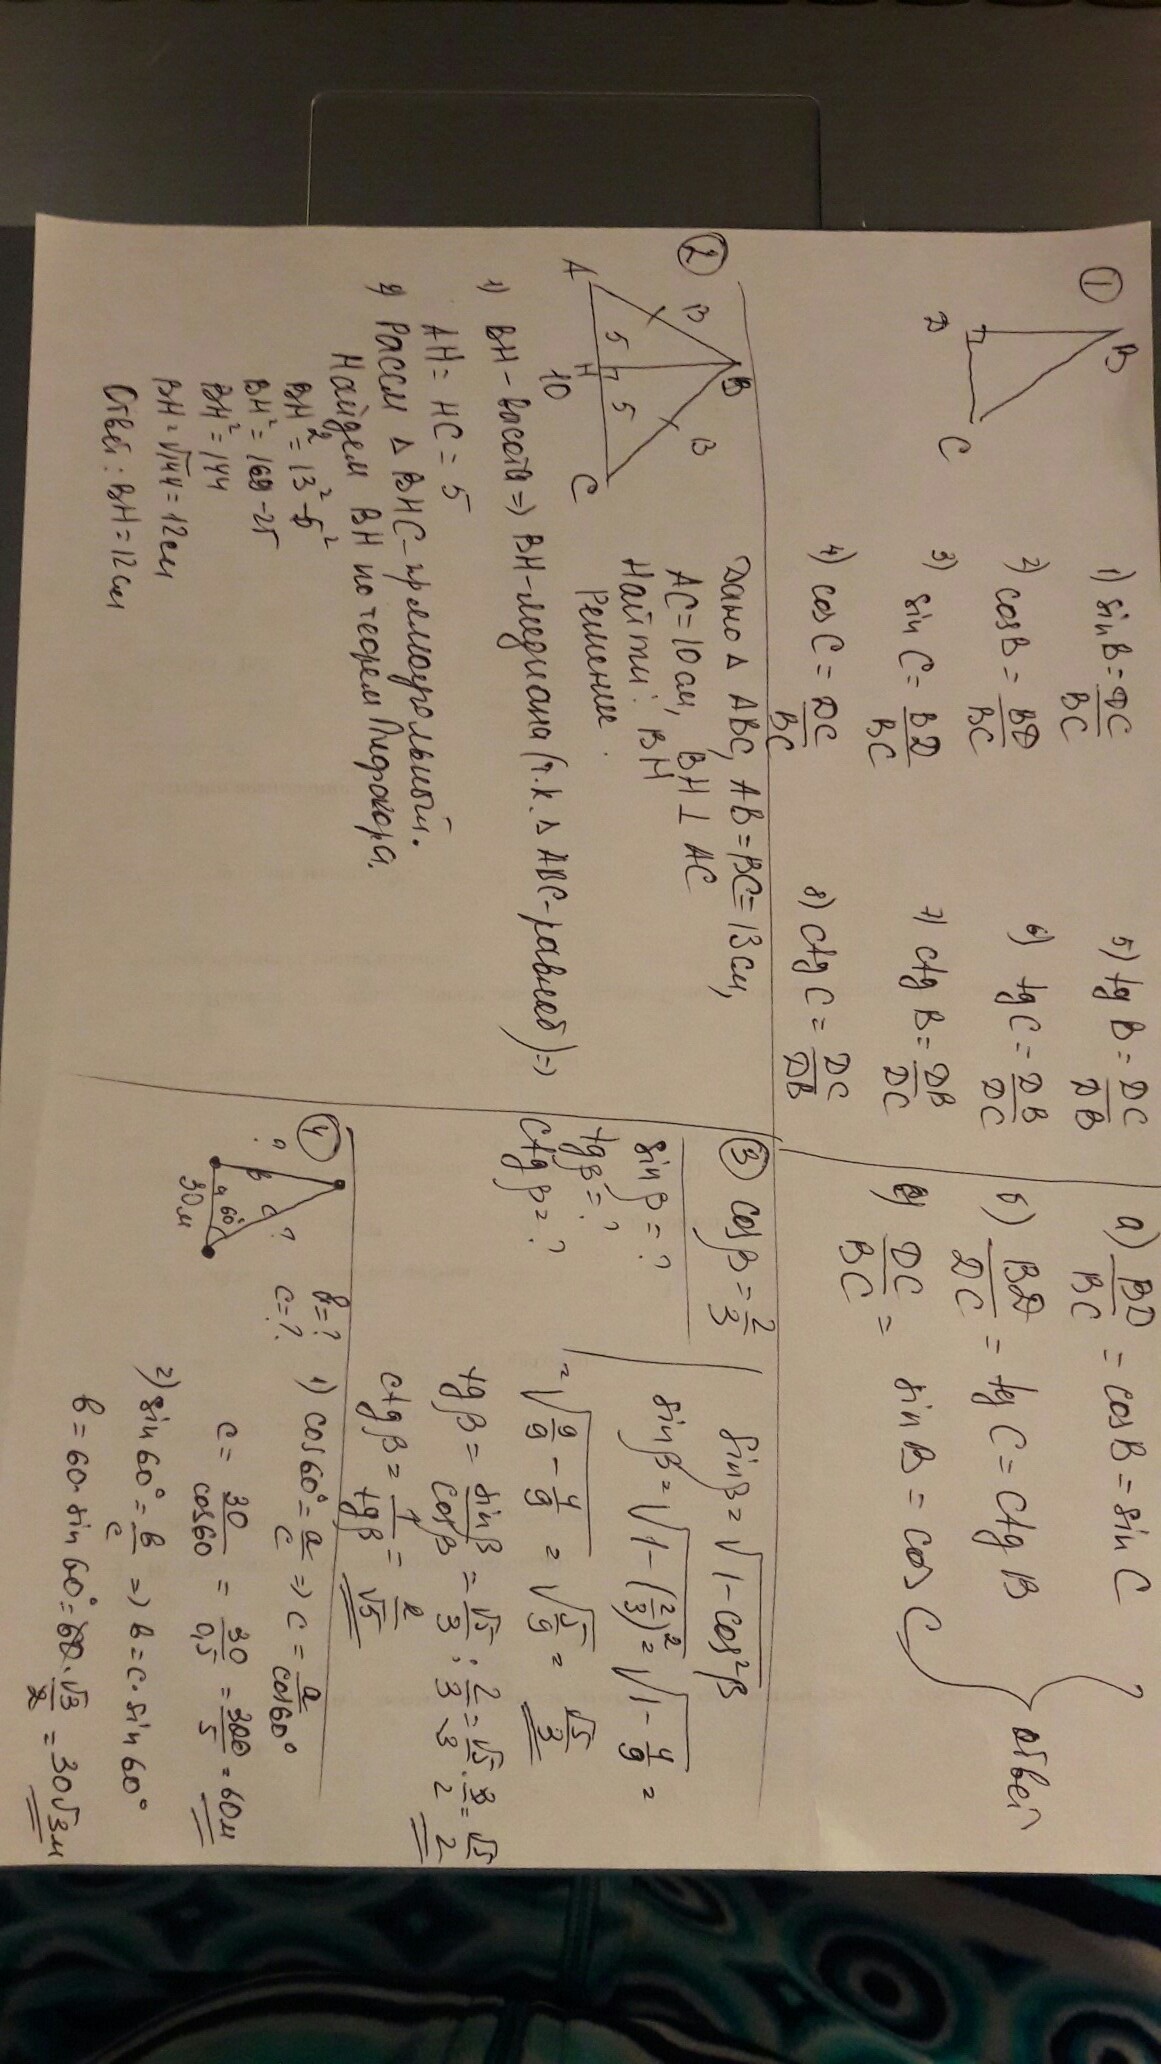 1
B
D
C
1) sin B = DC/BC
2) cos B = BD/BC
3) sin C = BD/BC
4) cos C = DC/BC
5) tg B = DC/DB
6) tg C = DB/DC
7) ctg B = DB/DC
8) ctg C = DC/DB
а) BD/BC = cos B = sin C
б) BD/DC = tg C = ctg B
DC/BC = sin B = cos C
ответ
2
B
13
13
5
5
A
H
C
10
Дано Δ ABC, AB = BC = 13 см,
AC = 10 см, BH ⊥ AC
Найти: BH
Решение.
1) BH - высота => BH - медиана (т.к. Δ ABC - равноб) =>
AH = HC = 5
2) Рассм Δ BHC - прямоугольный.
Найдем BH по теорем Пифагора.
BH² = 13² - 5²
BH² = 169 - 25
BH² = 144
BH = √144 = 12 см
Ответ: BH = 12 см
3
cos β = 2/3
sin β = ?
tg β = ?
ctg β = ?
sin β = √(1 - cos² β)
sin β = √(1 - (2/3)²) = √(1 - 4/9) =
= √(9/9 - 4/9) = √(5/9) = √5/3
tg β = sin β/cos β = √5/3 : 2/3 = √5/3 · 3/2 = √5/2
ctg β = 1/tg β = 2/√5
4
?
в
c
?
a
60°
30 м
в = ?
c = ?
1) cos 60° = a/c => c = a/cos 60°
c = 30/cos 60 = 30/0,5 = 300/5 = 60 м
2) sin 60° = в/c => в = c · sin 60°
в = 60 · sin 60° = 60 · √3/2 = 30√3 м